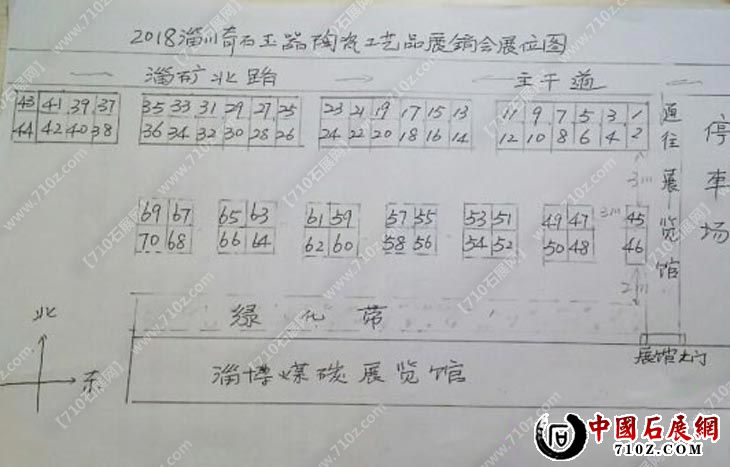 2018淄川奇石玉器陶瓷工艺品展销会展位图
淄矿北路 主干道
43 41 39 37 35 33 31 29 27 25 23 21 19 17 15 13 11 9 7 5 3 1
44 42 40 38 36 34 32 30 28 26 24 22 20 18 16 14 12 10 8 6 4 2
通往展览馆
停车场
3m
69 67 65 63 61 59 57 55 53 51 49 47 3m 45
70 68 66 64 62 60 58 56 54 52 50 48 46
2m
绿化带
北
东
展馆大门
淄博煤碳展览馆
中國石展網
710Z.COM
【710石展网】
www.710z.com